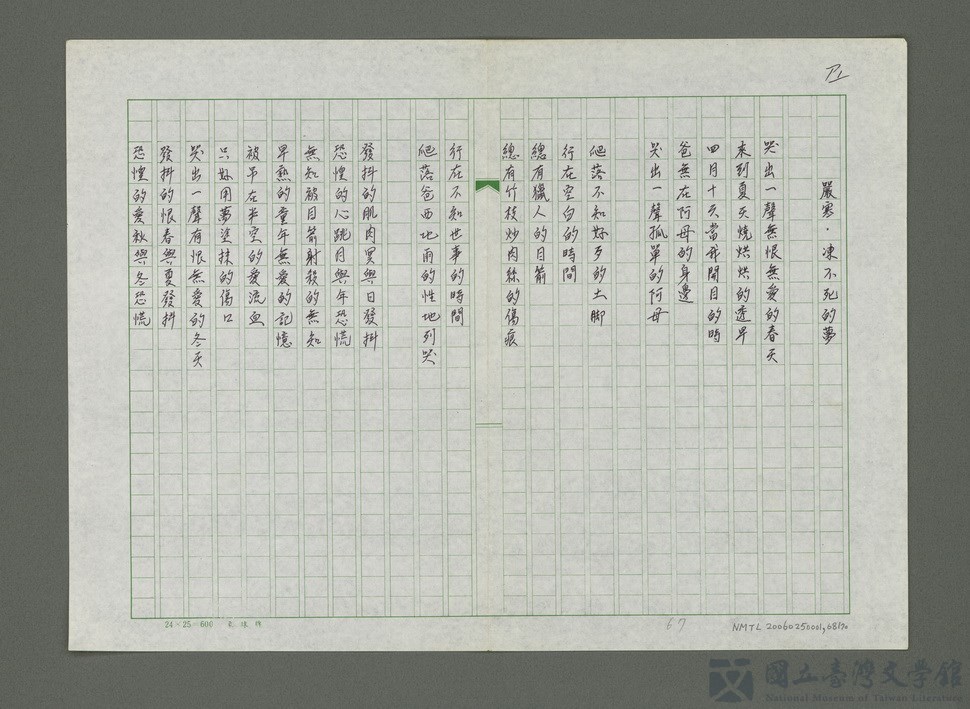 嚴寒·凍不死的夢
哭出一聲無恨無愛的春天
來到夏天燒烘烘的透早
四月十天當我開目的時
爸無在阿母的身邊
哭出一聲孤單的阿母
爬落不知好歹的土脚
行在空白的時間
總有獵人的目箭
總有竹枝炒肉絲的傷痕
行在不知世事的時間
爬落爸西北雨的性地列哭
發抖的肌肉暝與日發抖
恐惶的心跳月與年恐慌
無知被目箭射殺的無知
早熟的童年無愛的記憶
被吊在半空的愛流血
只好用夢塗抹的傷口
哭出一聲有恨無愛的冬天
發抖的恨春與夏發抖
恐惶的愛秋與冬恐慌
24×25=600
67
NMTL 20060250001,0817
國立臺灣文学館
National Museum of Taiwan Literature